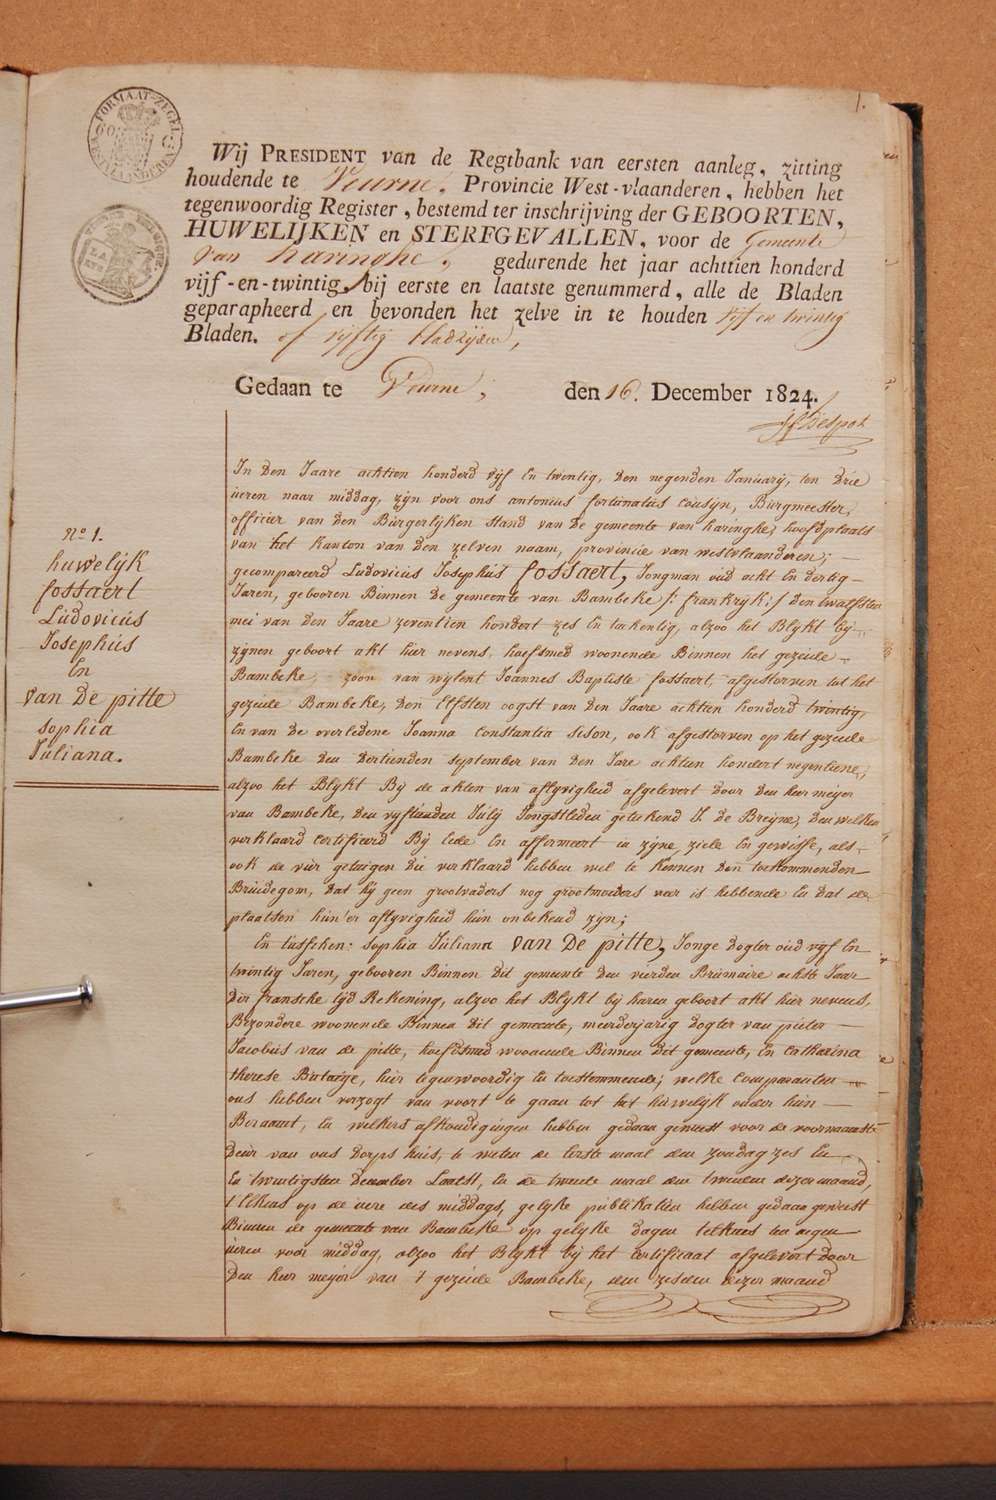 1.
FORMAAT-ZEGEL
60 C
WESTVLAANDEREN
Wij PRESIDENT van de Regtbank van eersten aanleg, zitting
houdende te Veurne, Provincie West-vlaanderen, hebben het
tegenwoordig Register, bestemd ter inschrijving der GEBOORTEN,
HUWELIJKEN en STERFGEVALLEN, voor de Gemeente
van haringhe, gedurende het jaar achttien honderd
vijf-en-twintig, bij eerste en laatste genummerd, alle de Bladen
geparapheerd en bevonden het zelve in te houden vijf en twintig
Bladen. of vijftig bladzijden,
Gedaan te Veurne, den 16. December 1824.
No 1.
huwelijk
fossaert
Ludovicus
Josephus
En
van De pitte
sophia
Juliana.
In den Jaare achtien honderd vijf En twintig, den negenden Januarij, ten drie
ueren naar middag, zijn voor ons antonius fortunatus cousyn, Burgmeester,
officier van den Burgerlijken stand van de gemeente van haringhe, hoofdplaats
van het kanton van den zelven naam, provincie van westvlaanderen;
gecompareerd Ludovicus Josephus fossaert, Jongman oud acht En dertig
Jaren, gebooren Binnen de gemeente van Bambeke /: frankrijk :/ den twalfsten
mei van den Jaare zeventien hondert zes En tachentig, alzoo het Blijkt bij
zijnen geboort akt hier nevens, hoefsmed woonende Binnen het gezeide
Bambeke, zoon van wijlent Joannes Baptiste fossaert, afgestorven tot het
gezeide Bambeke, den Elfsten oogst van den Jaare achtien honderd twintig,
En van de overledene Joanna Constantia sison, ook afgestorven op het gezeide
Bambeke den dertienden september van den Jare achtien hondert negentiene,
alzoo het Blijkt Bij de akten van aflyvigheid afgelevert door den heer meyer
van Bambeke, den vyftienden Julij Jongstleden geteekend J. De Breyne, den welken
verklaard certifieerd Bij Eede En affirmeert in zyne ziele En gewisse, als
ook de vier getuigen die verklaard hebben wel te kennen den toekommenden
Bruidegom, dat hij geen grootvaders nog grootmoeders meer is hebbende En dat de
plaatsen hun'er aflyvigheid hun onbekend zyn;
En tusschen: sophia Juliana van De pitte, Jonge dogter oud vyf En
twintig Jaren, gebooren Binnen dit gemeente den vierden Brumaire achste Jaar
der fransche tyd Rekening, alzoo het Blykt by haren geboort akt hier nevens,
Bezondere woonende Binnen dit gemeente, meerderjarig dogter van pieter
Jacobus van de pitte, hoefsmed woonende Binnen dit gemeente, En catharina
therese Butaeye, hier tegenwoordig En toestemmende; welke comparanten
ons hebben verzogt van voort te gaan tot het huwelijk onder hun
Beraamt, En welkers afkondigingen hebben gedaan geweest voor de voornaamste
deur van ons dorps huis, te weten de Eerste maal den zondag zes En
En twintigsten December Laatst, En de tweede maal den tweeden dezer maand,
telkens op de uere des middags, gelyke publikatien hebben gedaan geweest
Binnen de gemeente van Bambeke op gelyke dagen telkens ten negen
ueren voor middag, alzoo het Blykt by het certificaat afgelevert door
den heer meyer van 't gezeide Bambeke, den zesden dezer maand